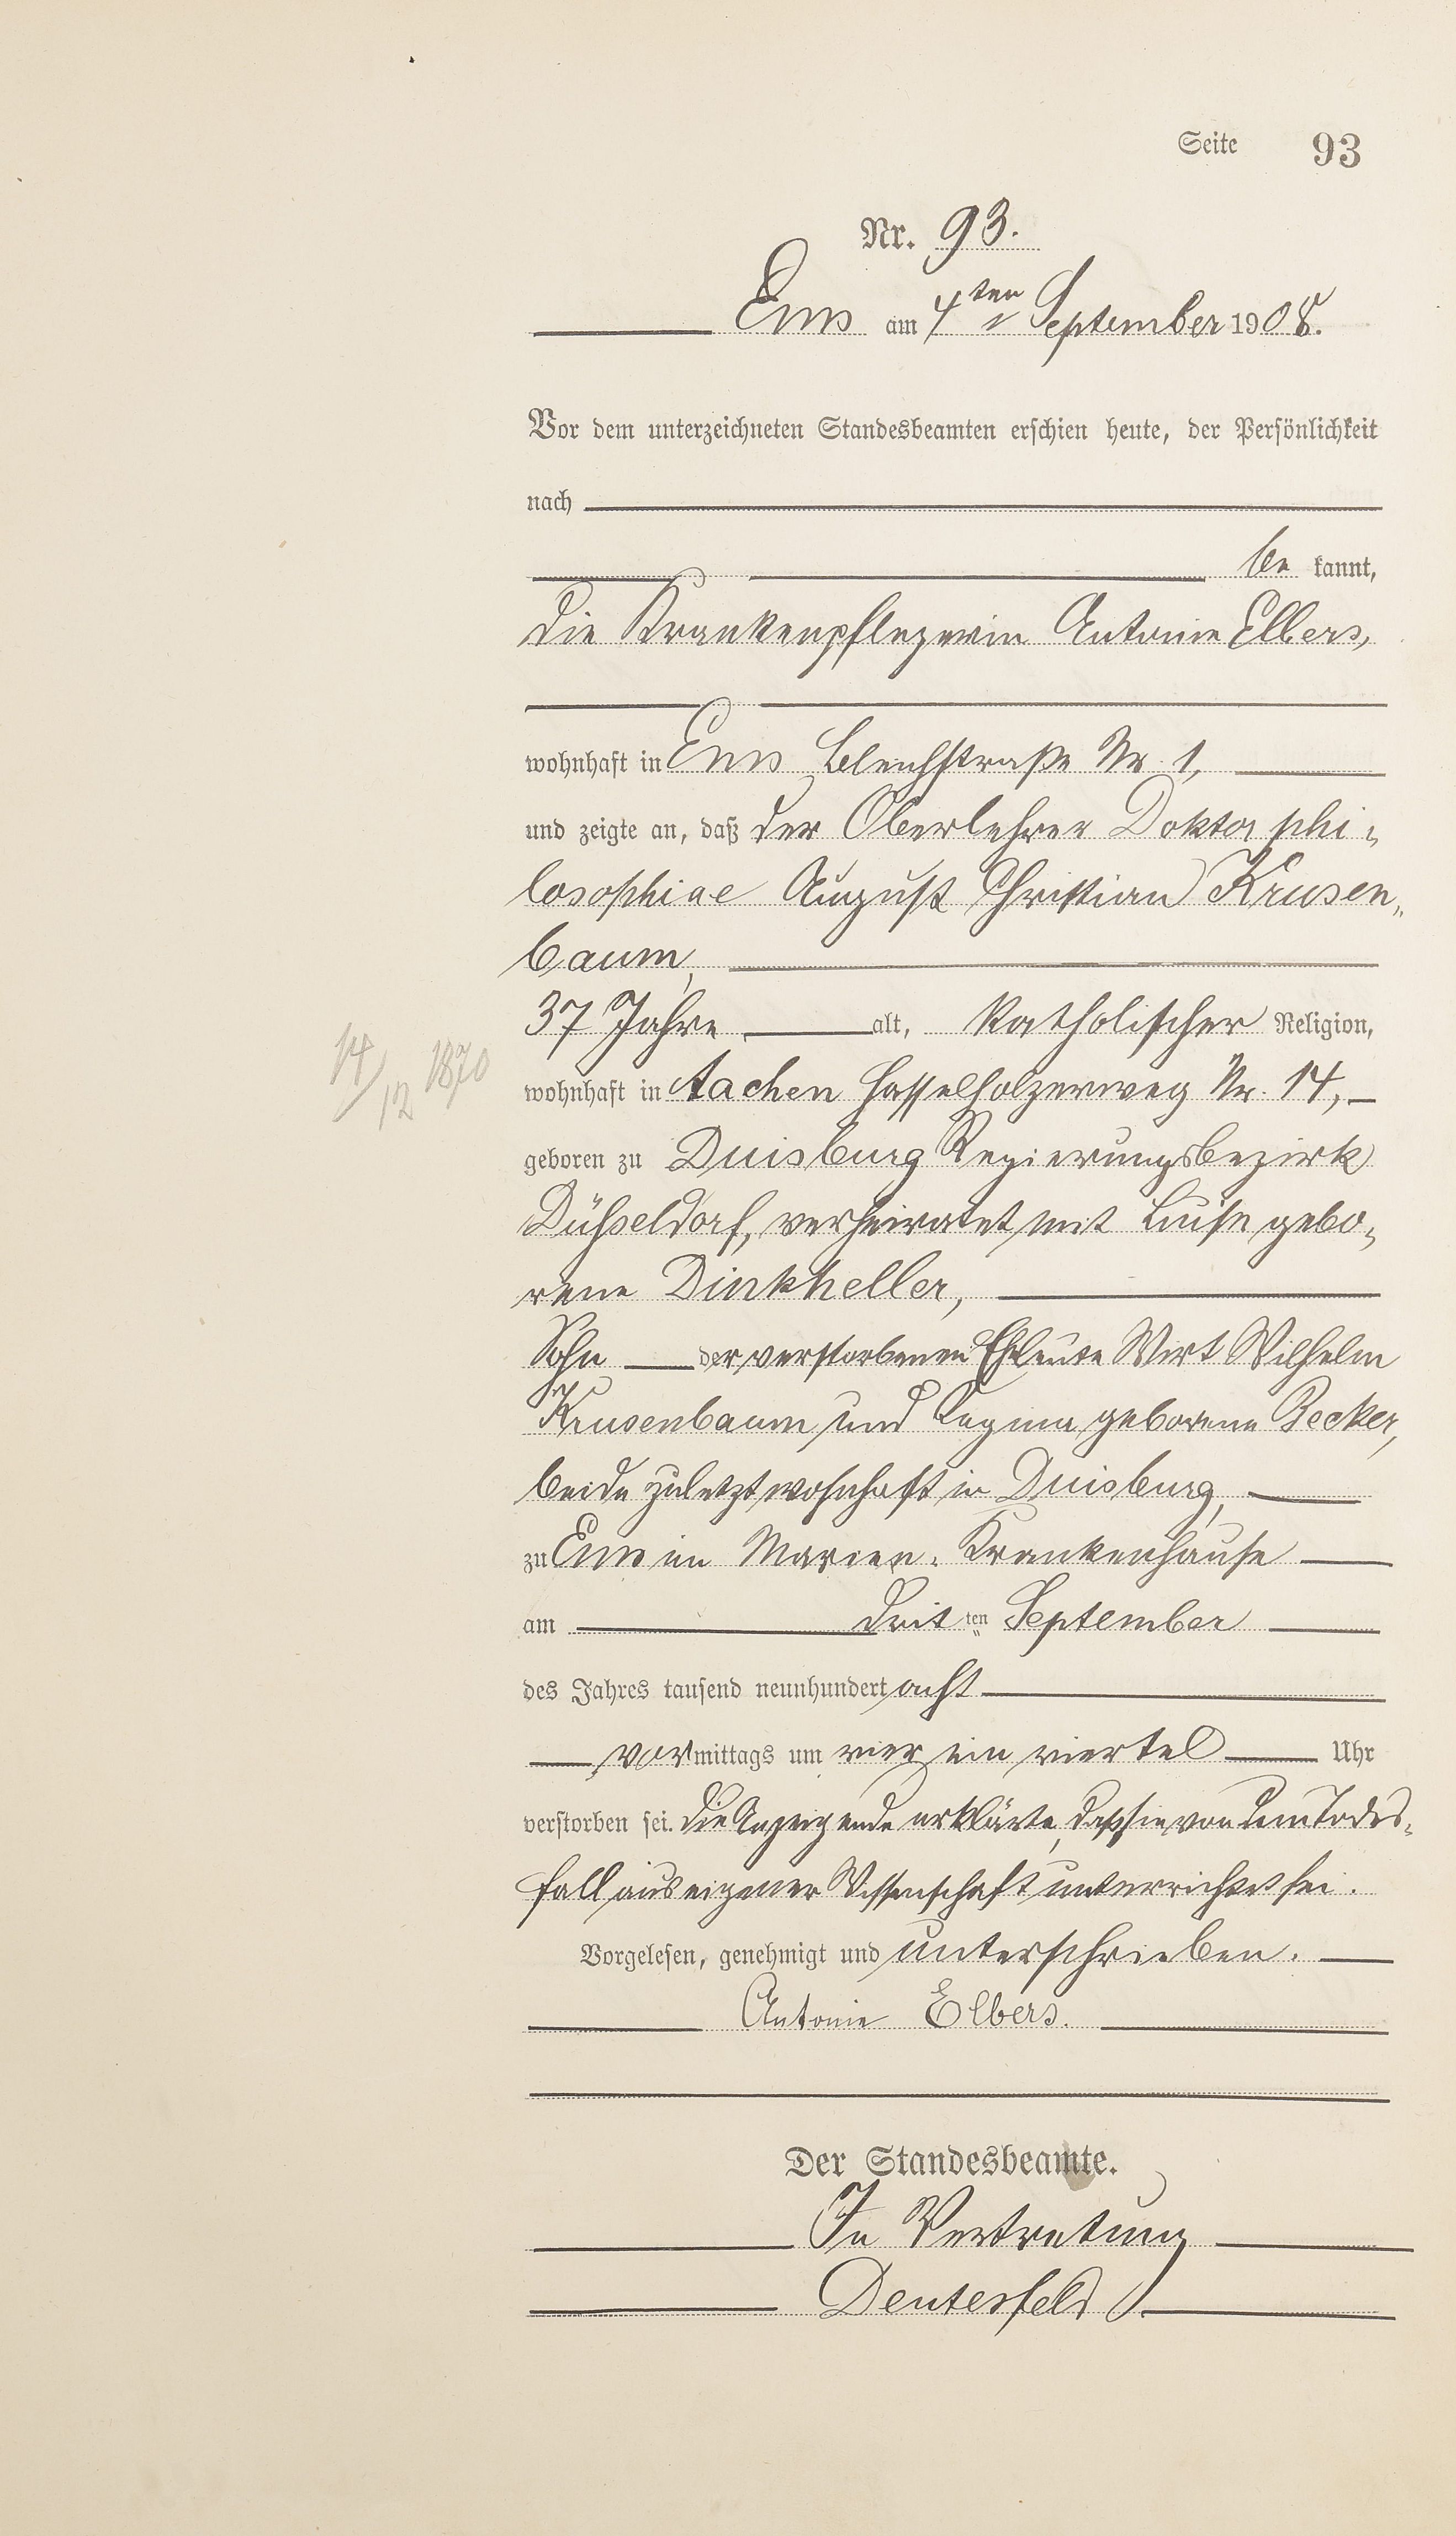 Seite 93
Nr. 93.
Ems am 4ten September 1908.
Vor dem unterzeichneten Standesbeamten erschien heute, der Persönlichkeit
nach
be kannt,
die Krankenpflegerin Antonie Elbers,
wohnhaft in Ems Bleichstraße Nr. 1,
und zeigte an, daß der Oberlehrer Doktor phi-
losophiae August Christian Krusen-
baum,
37 Jahre alt, katholischer Religion,
14/12 1870
wohnhaft in Aachen Hasselholzerweg Nr. 14,
geboren zu Duisburg Regierungsbezirk
Düsseldorf, verheiratet mit Luise gebo-
rene Dinkheller,
Sohn der verstorbenen Eheleute Wirt Wilhelm
Krusenbaum und Regina geborene Becker,
beide zuletzt wohnhaft in Duisburg,
zu Ems im Marien-Krankenhause
am dritten September
des Jahres tausend neunhundert acht
vormittags um vier ein viertel Uhr
verstorben sei. Die Anzeigende erklärte, daß sie von dem Todes-
fall aus eigener Wissenschaft unterrichtet sei.
Vorgelesen, genehmigt und unterschrieben.
Antonie Elbers.
Der Standesbeamte.
In Vertretung